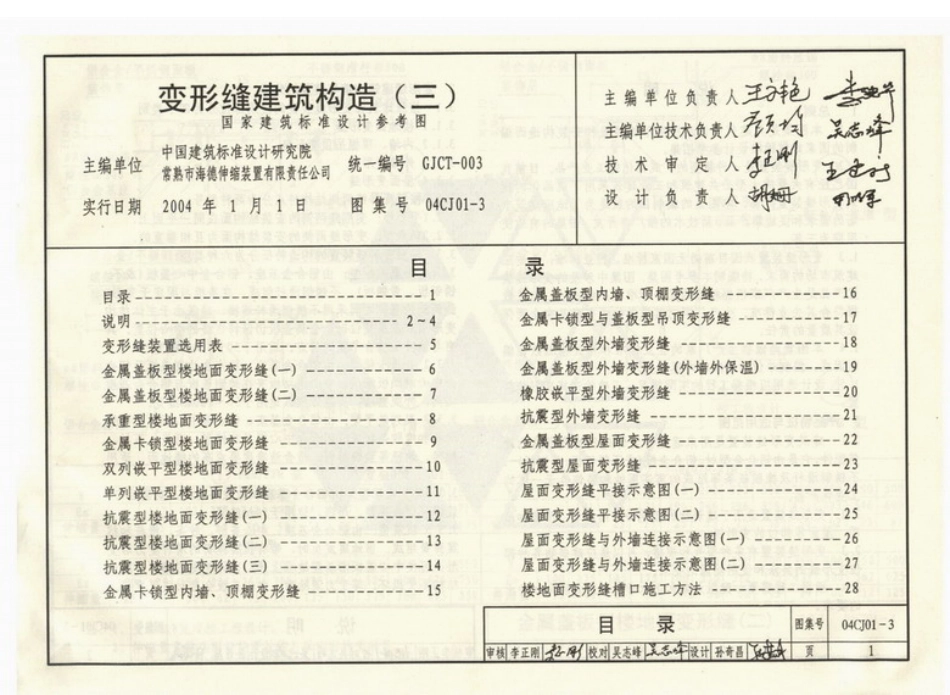 变形缝建筑构造（三）
国家建筑标准设计参考图
主编单位 中国建筑标准设计研究院
常熟市海德伸缩装置有限责任公司
统一编号 GJCT-003
实行日期 2004 年 1 月 1 日 图集号 04CJ01-3
主编单位负责人
主编单位技术负责人 吴志峰
技术审定人
设计负责人
目 录
目录 1
说明 2-4
变形缝装置选用表 5
金属盖板型楼地面变形缝(一) 6
金属盖板型楼地面变形缝(二) 7
承重型楼地面变形缝 8
金属卡锁型楼地面变形缝 9
双列嵌平型楼地面变形缝 10
单列嵌平型楼地面变形缝 11
抗震型楼地面变形缝(一) 12
抗震型楼地面变形缝(二) 13
抗震型楼地面变形缝(三) 14
金属卡锁型内墙、顶棚变形缝 15
金属盖板型内墙、顶棚变形缝 16
金属卡锁型与盖板型吊顶变形缝 17
金属盖板型外墙变形缝 18
金属盖板型外墙变形缝(外墙外保温) 19
橡胶嵌平型外墙变形缝 20
抗震型外墙变形缝 21
金属盖板型屋面变形缝 22
抗震型屋面变形缝 23
屋面变形缝平接示意图(一) 24
屋面变形缝平接示意图(二) 25
屋面变形缝与外墙连接示意图(一) 26
屋面变形缝与外墙连接示意图(二) 27
楼地面变形缝槽口施工方法 28
目 录 图集号 04CJ01-3
审核 李正刚 校对 吴志峰 吴志峰 设计 孙奇昌 页 1